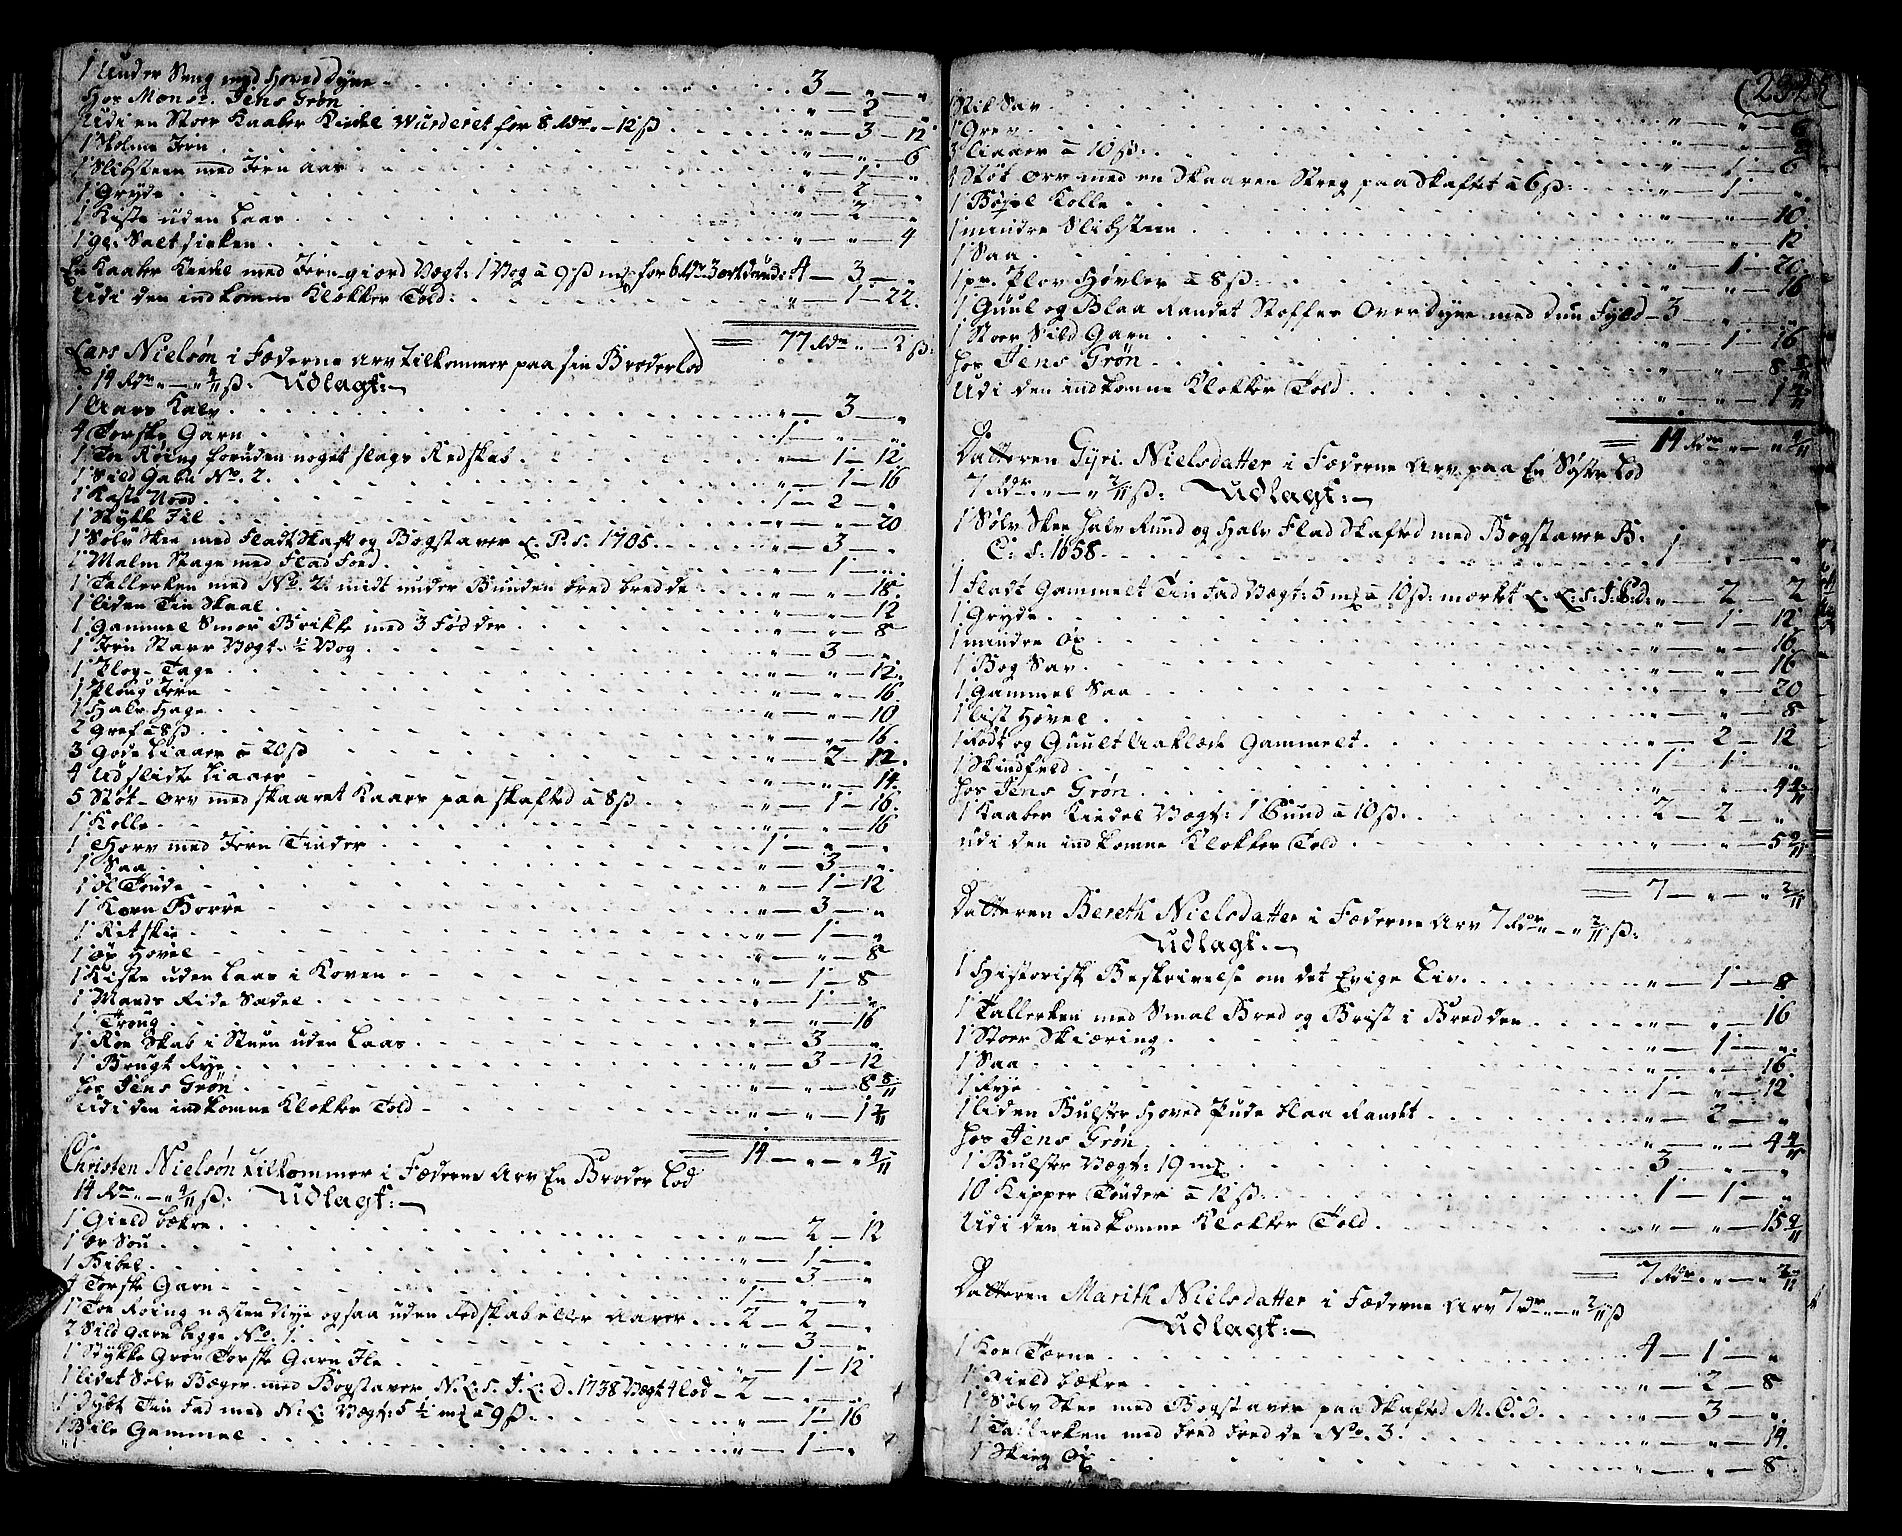 1 Under Seng med Hoved Dyne 3 — „ — „
Hos Mons.r Jens Grøn „ — 2 — „
Udi en Stoer Kaaber Kiedel Wurderet for 8 Rdr. „ — 12 ß „ — 3 — 12
1 Holme Jern „ — „ — 6
1 Slibsteen med Jern Aas „ — 1 — „
1 Gryde „ — 2 — „
1 Kiste uden Laas „ — 2 — „
1 gl. Salt „ — „ — 4
En Kaaber Kiedel med Jern giord Vægt: 1 Vog a 9 ß for 6 Rdr. 3 ort 4 — 3 — „
Udi den indkomne Klokker Told: „ — 1 — 22.
77 Rdr „ — 2 ß:
Lars Nielsøn i Fæderne Arv tilkommer paa sin Broderlod
14 Rdr „ — „ 4/11 ß: Udlagt: —
1 Aars Kalv „ — 3 — „
4 Torske Garn 1 — „ — „
1 Toe Røing foruden noget slags Redskab „ — 1 — 12
1 Sild Gabn No. 2. „ — 1 — 16
1 Kaste Nood 1 — 2 — „
1 Stykke Jil „ — „ — 20
1 Sølv Skee med Fladt Skaft og Bogstaver L. P. S. 1705. „ — 3 — „
1 Malm Stage med Flad Foed „ — 1 — „
1 Tallerken med No. 2. midt under Bunden bred bredde „ — „ — 18.
1 liden Tin Skaal „ — „ — 12
1 gammel Smør Brikke med 3 Fødder „ — „ — 8
1 Jern Staur Vægt. ½ Vog „ — 3 — „
1 Plog-Tage „ — „ — 12.
1 Ploug Jern „ — „ — 16
1 Halv Hage „ — „ — 10
2 Gref a 8 ß „ — „ — 16.
3 Gode Liaaer a 20 ß „ — 2 — 12.
4 Udslidte Liaaer „ — „ — 14.
5 Støt-Orv med skaaret Kaars paa skafted a 8 ß „ — 1 — 16.
1 Kolle „ — „ — 16
1 Horv med Jern Tinder 1 — „ — „
1 Saa „ — 3 — „
1 Øl Tønde „ — 1 — 12
1 Korn Borre „ — 3 — „
1 Ritskie „ — 1 — „
1 Øx Høvel „ — „ — 8
1 Kiste uden Laas i Koven „ — 1 — 8
1 Mands Ride Sadel „ — 1 — „
1 Troug „ — „ — 16
1 Roe Skab i Stuen uden Laas „ — 3 — „
1 Brugt Rye „ — 3 — 12
Hos Jens Grøn „ — „ — 8 8/11
Udi den indkomne Klokker Told „ — „ — 1 7/11
14 — „ — „ 4/11
Christen Nielsøn tilkommer i Fæderne Arv En Broder Lod
14 Rdr „ — „ 4/11 ß: Udlagt: —
1 Gield bække „ — 2 — 12
1 Ær Sou „ — 1 — „
1 Bibel „ — 3 — „
4 Torske Garn 1 — „ — „
1 Toe Røing næsten Nye ogsaa uden Redskab eller Aarer 2 — 2 — „
2 Sild Garn begge No. 1. „ — 3 — „
1 Stykke Grov Torske Garn Ile „ — 1 — 12
1 lidet Sølv Bæger med Bogstaver N. L. S. I. L. D. 1738 Vægt 4 lod 2 — „ — „
1 Dybt Tin Fad med N: L: Vægt: 5 ½ mk a 9 ß „ — 1 — 16
1 Bile Gammel „ — 1 — „
1 Stik Sav „ — „ — 6
1 Grev
3 Liaaer a 10 ß: „ — 1 — 6
4 Støt Orv med en Skaaren Streg paa Skaftet a 6 ß: „ — 1 — „
1 Bøjel Kolle „ — „ — 10
1 mindre Slibsteen „ — „ — 12
1 Saa „ — 1 — 20.
1 pr. Plov Høvler a 8 ß: „ — „ — 16
1 Guul og Blaa Randet Stoffes Over Dyne med Dun Fyld 3 — „ — „
1 Stoer Sild Garn „ — 1 — 16
Hos Jens Grøn „ — „ — 8 8/11
Udi den indkomne Klokker Told „ — „ — 1 7/11
14 Rdr „ — „ 4/11
Datteren Gyri. Nielsdatter i Fæderne Arv paa En Søster Lod
7 Rdr. „ — „ 2/11 ß: Udlagt: —
1 Sølv Skee halv Rund og Halv Flad Skafted med Bogstaver B.
C: S: 1658. 1 — „ — „
1 Fladt Gammelt Tin Fad Vægt: 5 mk a 10 ß: mærket L. L: S: I: P: d: „ — 2 — 2
1 Gryde „ — 1 — 12
1 mindre Øx „ — „ — 16
1 Bog Sav „ — „ — 16
1 Gammel Saa „ — „ — 20
1 list Høvel „ — „ — 8
1 Rødt og Guult Aaklæde Gammelt „ — 2 — 12
1 Skindfeld 1 — 1 — „
Hos Jens Grøn „ — „ — 4 4/11
1 Kaaber Kiedel Vægt: 1 Bund a 10 ß. 2 — 2 — „
Udi den indkomne Klokker Told „ — „ — 5 9/11
7 — „ — „ 2/11
Datteren Bereth Nielsdatter i Fæderne Arv 7 Rdr „ — „ 2/11 ß:
Udlagt: —
1 Historisk Beskrivelse om det Evige Liv. „ — 1 — 8
1 Tallerken med Smal Bred og Brist i Bredden „ — „ — 16
1 Stoer Skiæring „ — 1 — „
1 Saa „ — „ — 16
1 Rye 1 — „ — 12
1 liden Bulster Hoved Pude blaa Randet „ — 2 — „
Hos Jens Grøn „ — „ — 4 4/11
1 Bulster Vægt: 19 mk 3 — „ — „
10 Kipper Tønder a 12 ß. 1 — 1 — „
Udi den indkomne Klokker Told „ — „ — 15 9/11
7 Rdr. „ — „ 2/11
Datteren Marith Nielsdatter i Fæderne Arv 7 Rdr „ — „ 2/11 ß
Udlagt: —
1 Koe Tærne 4 — 1 — „
1 Gield bække „ — 2 — 8
1 Sølv Skee med Bogstaver paa Skafted M. C. D. „ — 3 — „
1 Tallerken med bred bredde No. 3. „ — „ — 14.
1 Skieg Øx „ — „ — 8